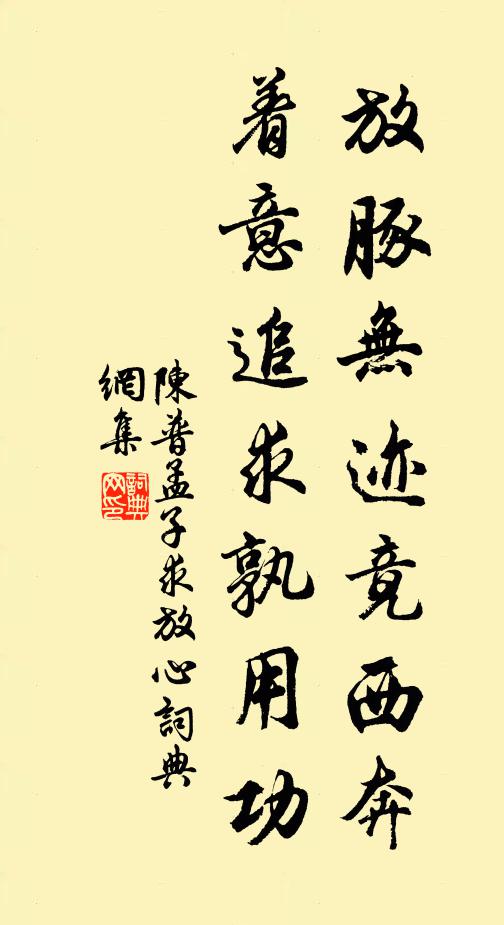 放豚無迹竟西奔
着意追求孰用功
陳普孟子求放心詞典
網集
詞典
网印